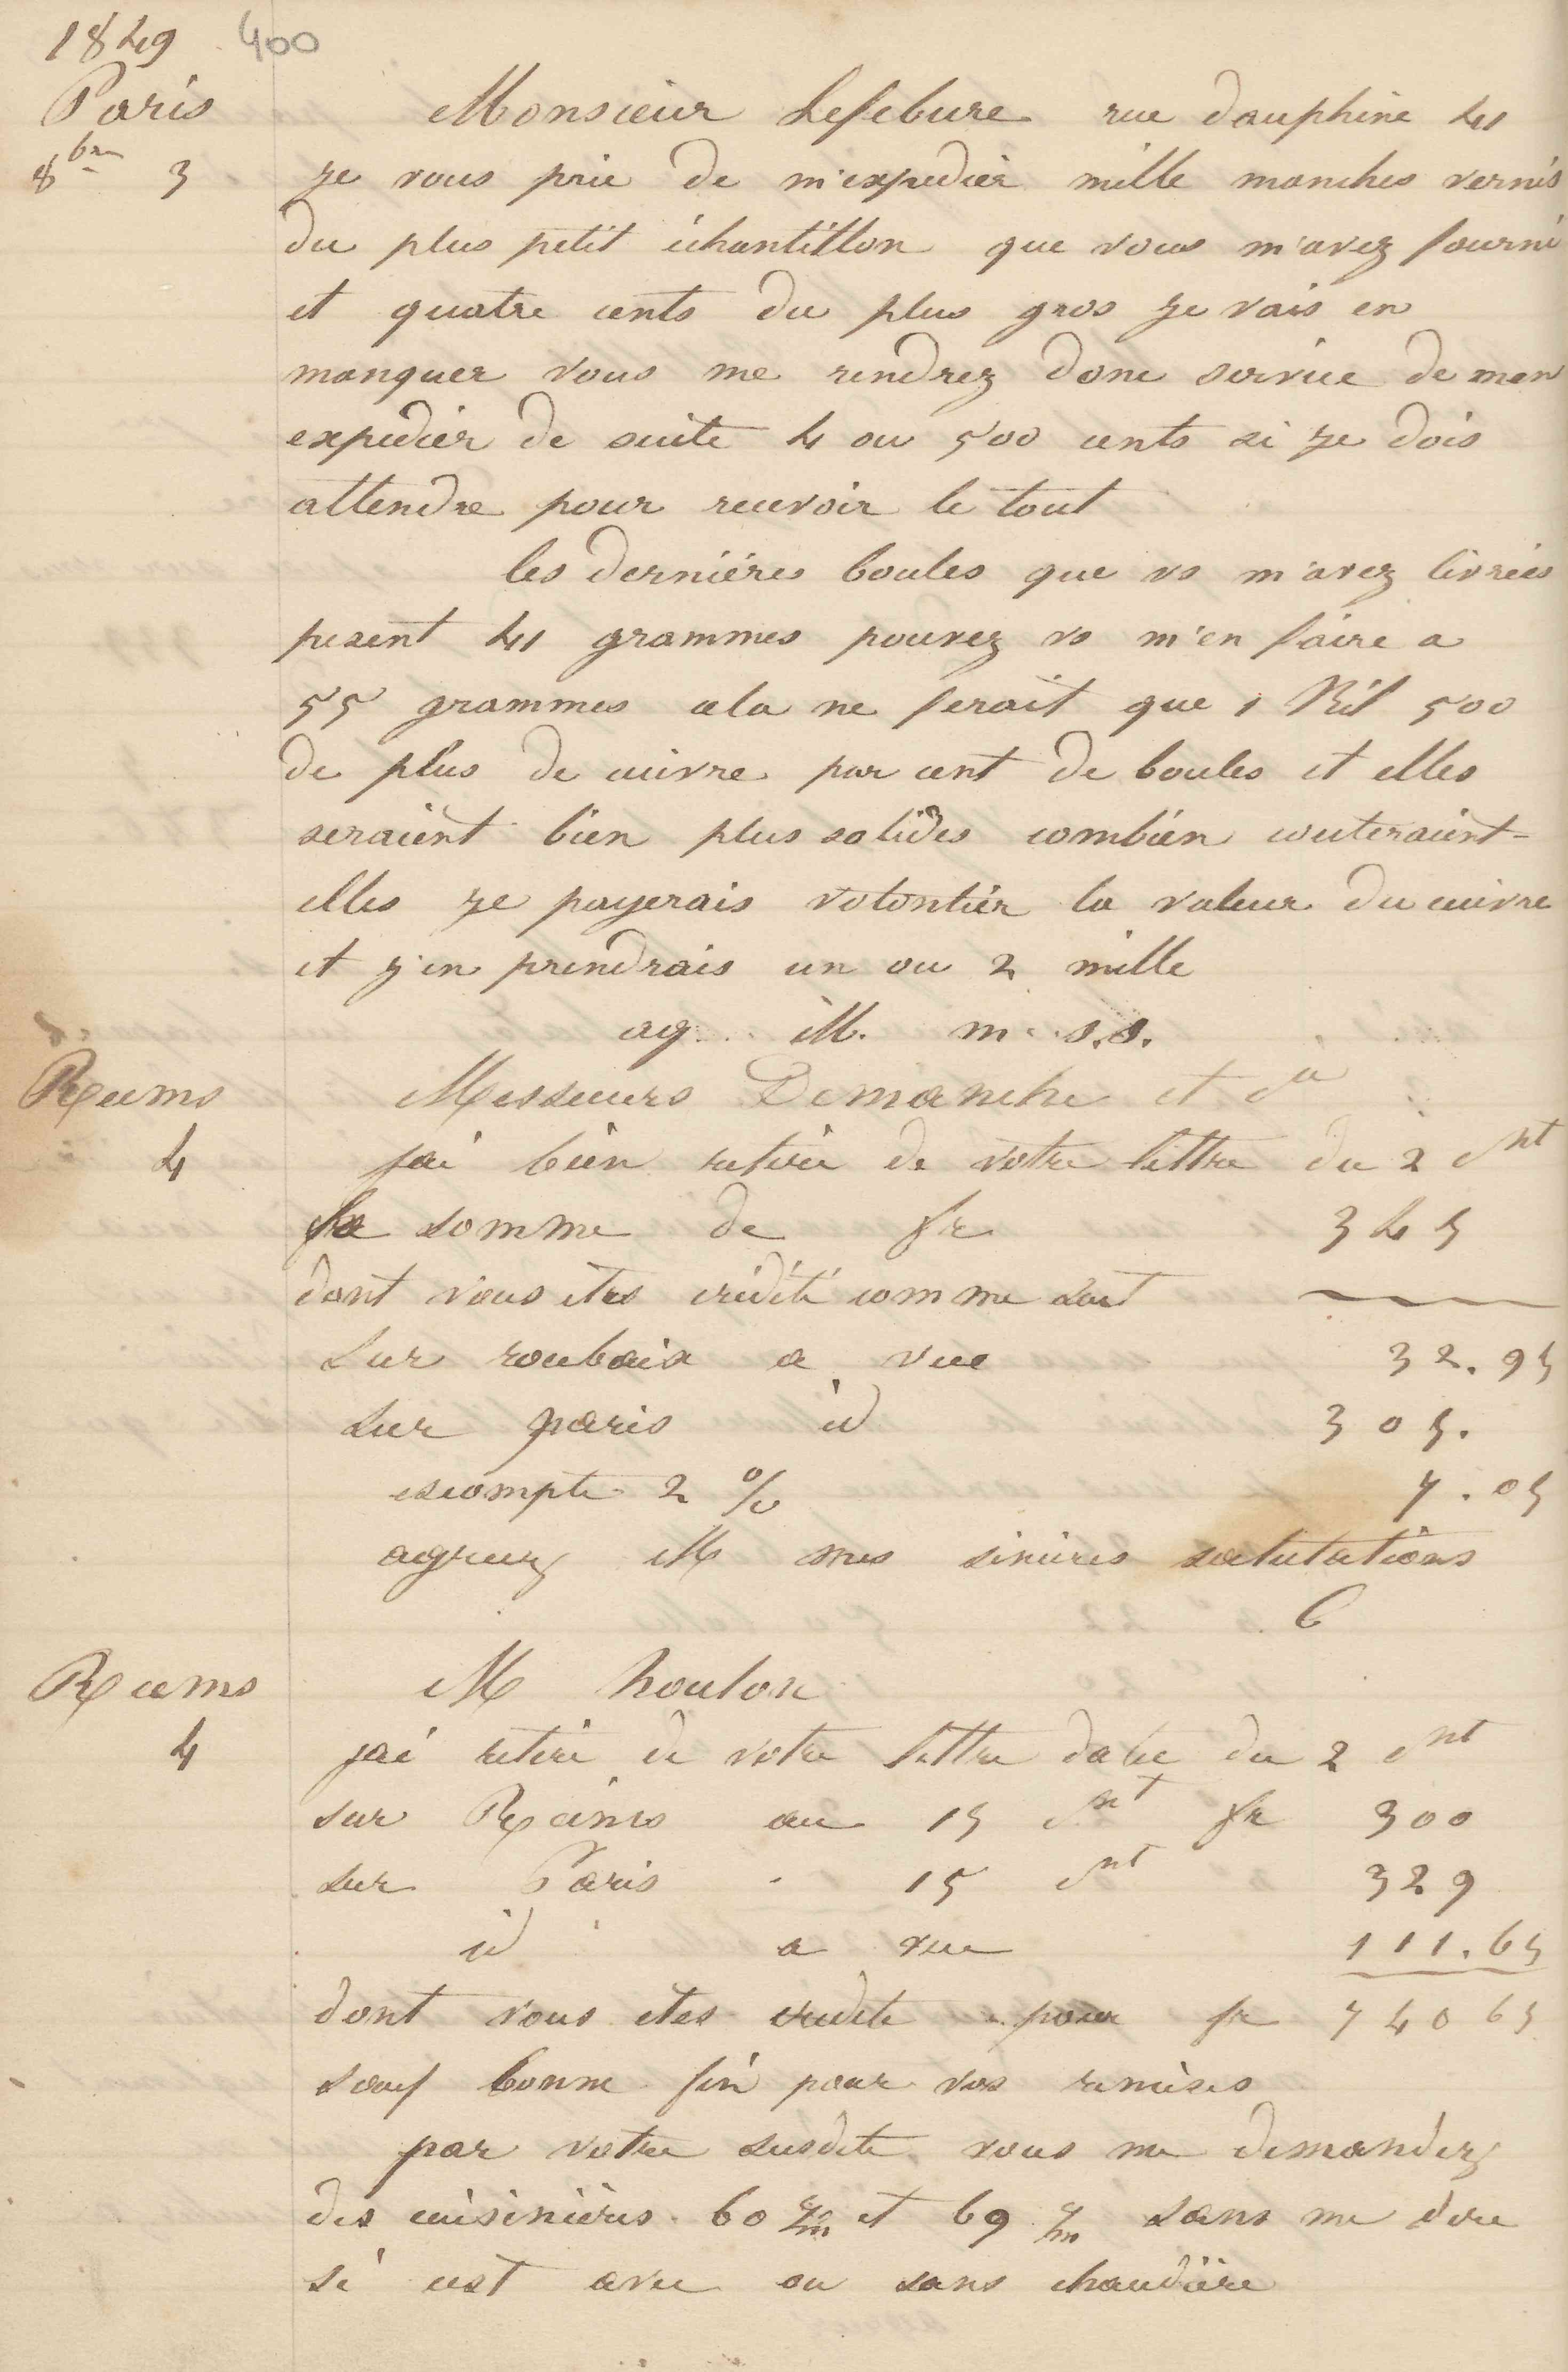 1849 400
Paris
8bre 3
Monsieur Lefebure rue dauphine 41
je vous prie de m'expedier mille manches vernis
du plus petit échantillon que vous m'avez fourni
et quatre cents du plus gros je vais en
manquer vous me rendrez donc service de men
expedier de suite 4 ou 500 cents si je dois
attendre pour recevoir le tout
les derniéres boules que vs m'avez livrées
pesent 41 grammes pouvez vs m'en faire a
55 grammes cela ne ferait que 1 Kil 500
de plus de cuivre par cent de boules et elles
seraient bien plus solides combien couteraient-
elles je payerais volontier la valeur du cuivre
et j'en prendrais un ou 2 mille
ag. M. m. s.s.
Reims
4
Messieurs Demanche et Cie
jai bien retiré de votre lettre du 2 Ct
la somme de fr 345
dont vous êtes crédité comme suit
sur roubaix a vue 32.95
sur paris id 305.
escompte 2 % 7.05
agreez M mes sincères salutations
G
Reims
4
M houlon
jai retiré de votre lettre datée du 2 Ct
sur Reims au 15 Ct fr 300
sur Paris - 15 Ct 329
id a vue 111.65
dont vous etes credité pour fr 740 65
sauf bonne fin pour vos remises
par votre susdite vous me demandez
des cuisinières 60 c/m et 69 c/m sans me dire
si cest avec ou sans chaudière